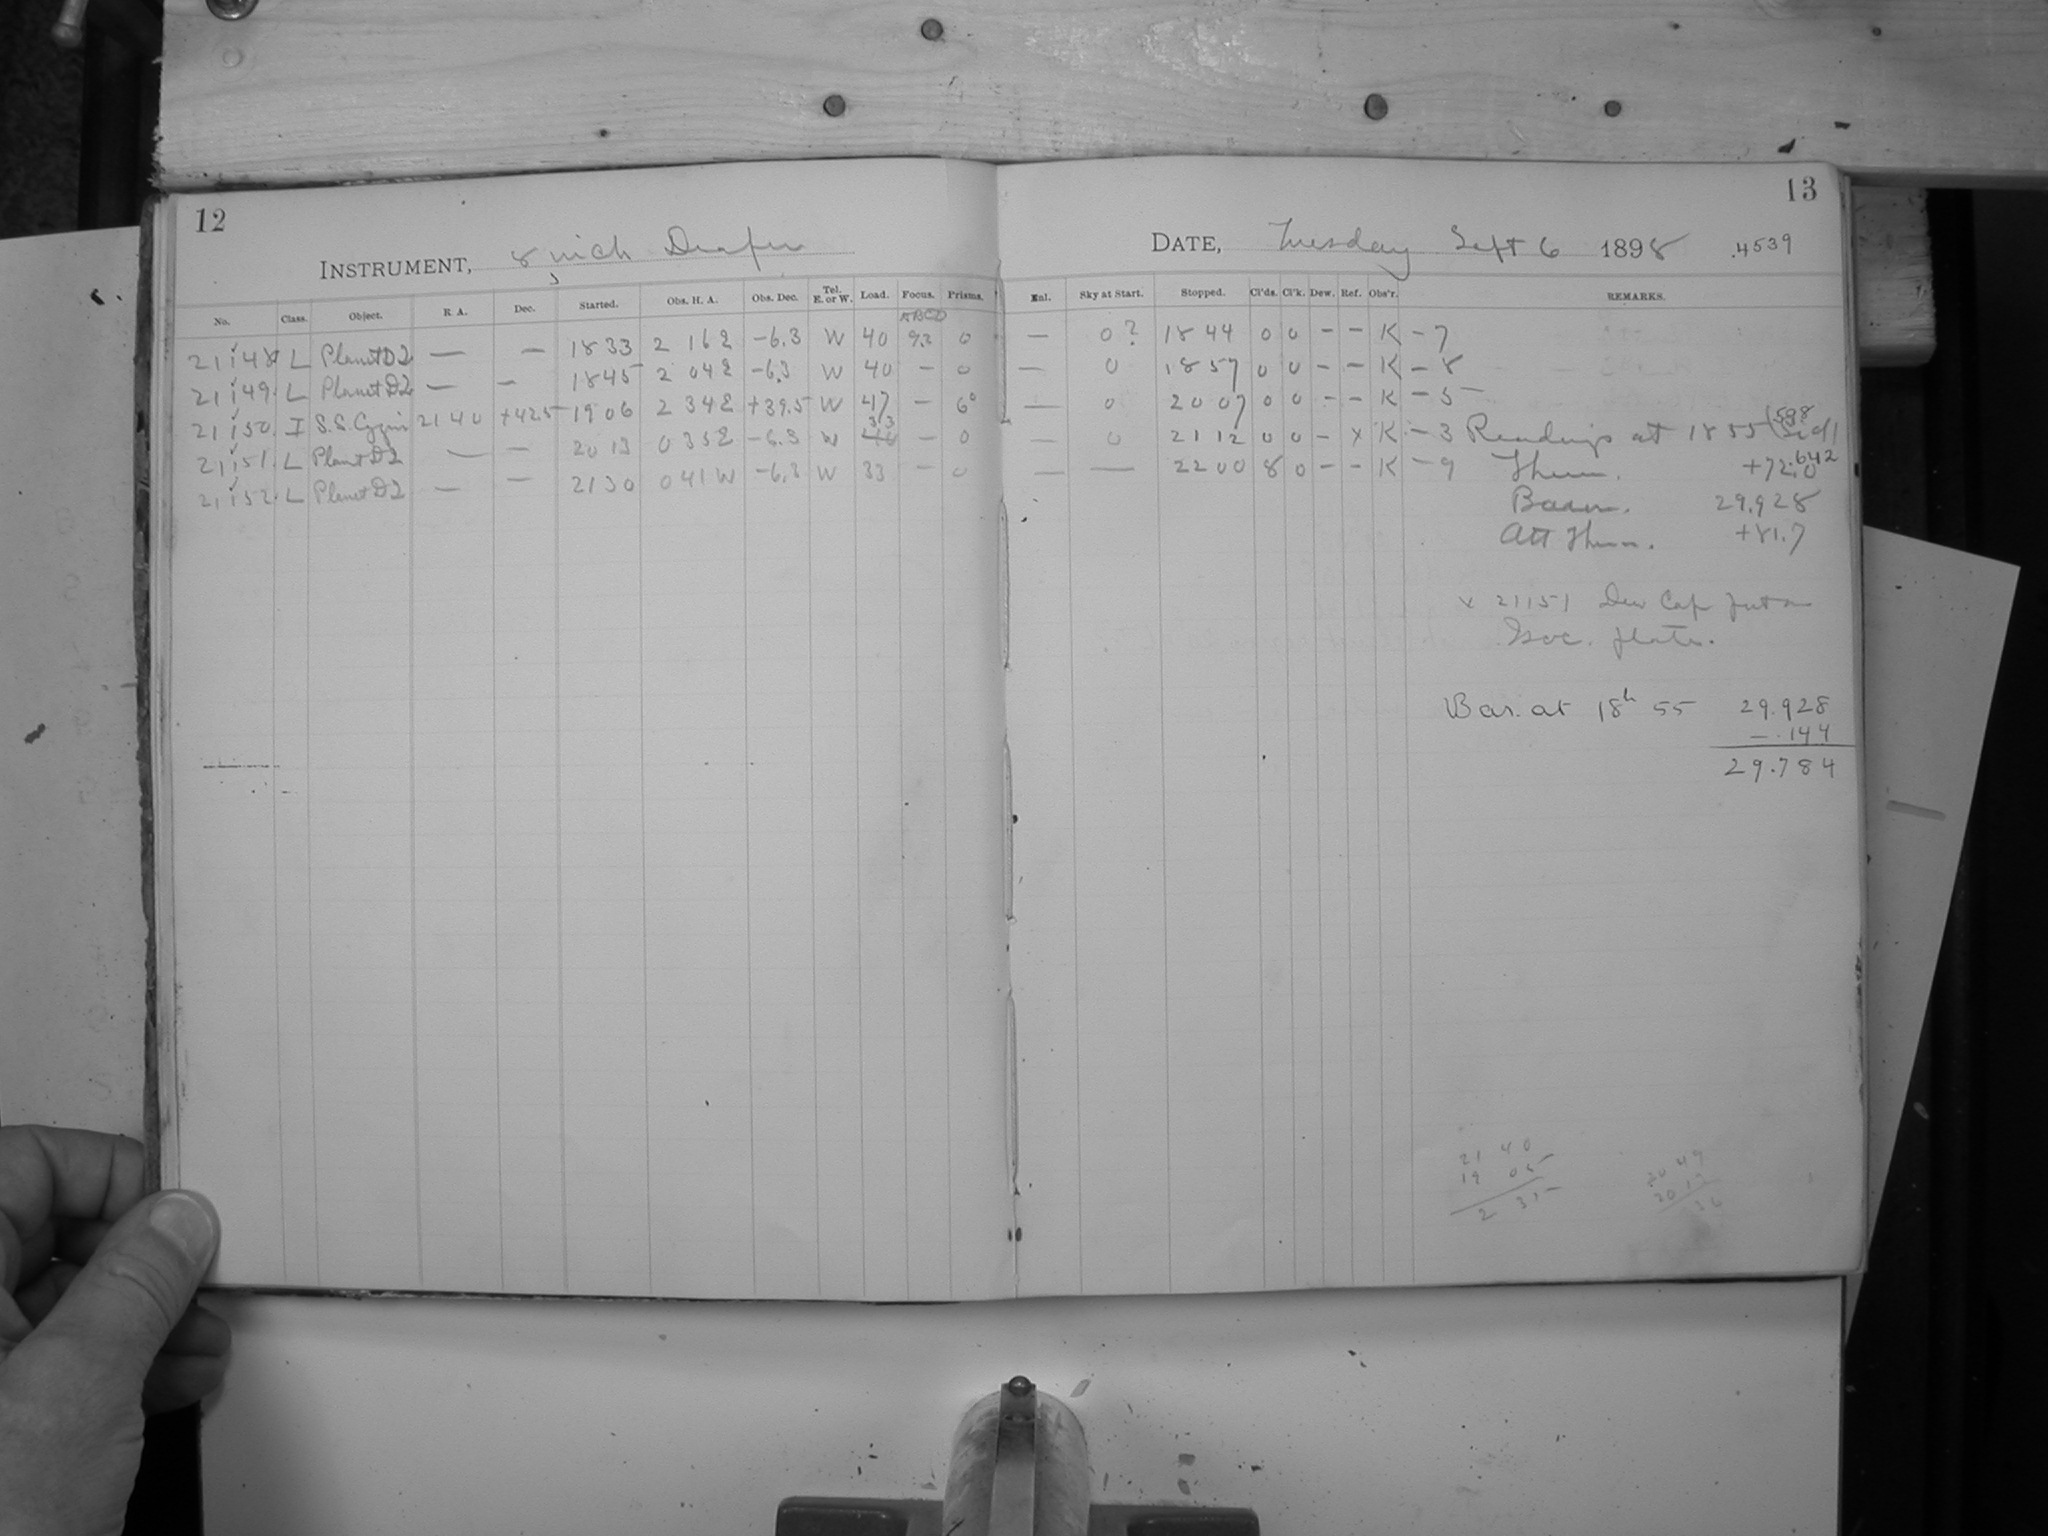 12
INSTRUMENT, 8 inch Draper
No. Class. Object. R A. Dec. Started. Obs. H. A. Obs. Dec. Tel. E. or W. Load. Focus. Prisms.
ABCD
21148 L Planet DQ — — 1833 2 16 E -6.3 W 40 92 0
21149 L Planet DQ — — 1845 2 04 E -6.3 W 40 — 0
21150 I S.S. Cygni 21 40 +425 1906 2 34 E +39.5 W 47 — 6°
21151 L Planet DQ — — 2013 0 35 E -6.3 W 33 — 0
21152 L Planet DQ — — 2130 0 41 W -6.3 W 33 — 0
13
DATE, Tuesday Sept 6 1898 .4539
Enl. Sky at Start. Stopped. Cl'ds. Cl'k. Dew. Ref. Obs'r. REMARKS.
— 0? 1844 0 0 – – K – 7
— 0 1857 0 0 – – K – 8
— 0 2007 0 0 – – K – 5
— 0 2112 0 0 – x K – 3 Readings at 1855 (Sid)
.598
— — 2200 8 0 – – K – 9 Therm. +72.0
.642
Barom. 29.928
Att Therm. +81.7
x 21151 Dew Cap put on
Isoc. plate.
Bar. at 18h 55 29.928
– .144
29.784
21 40
19 05
2 35
20 49
20 13
36